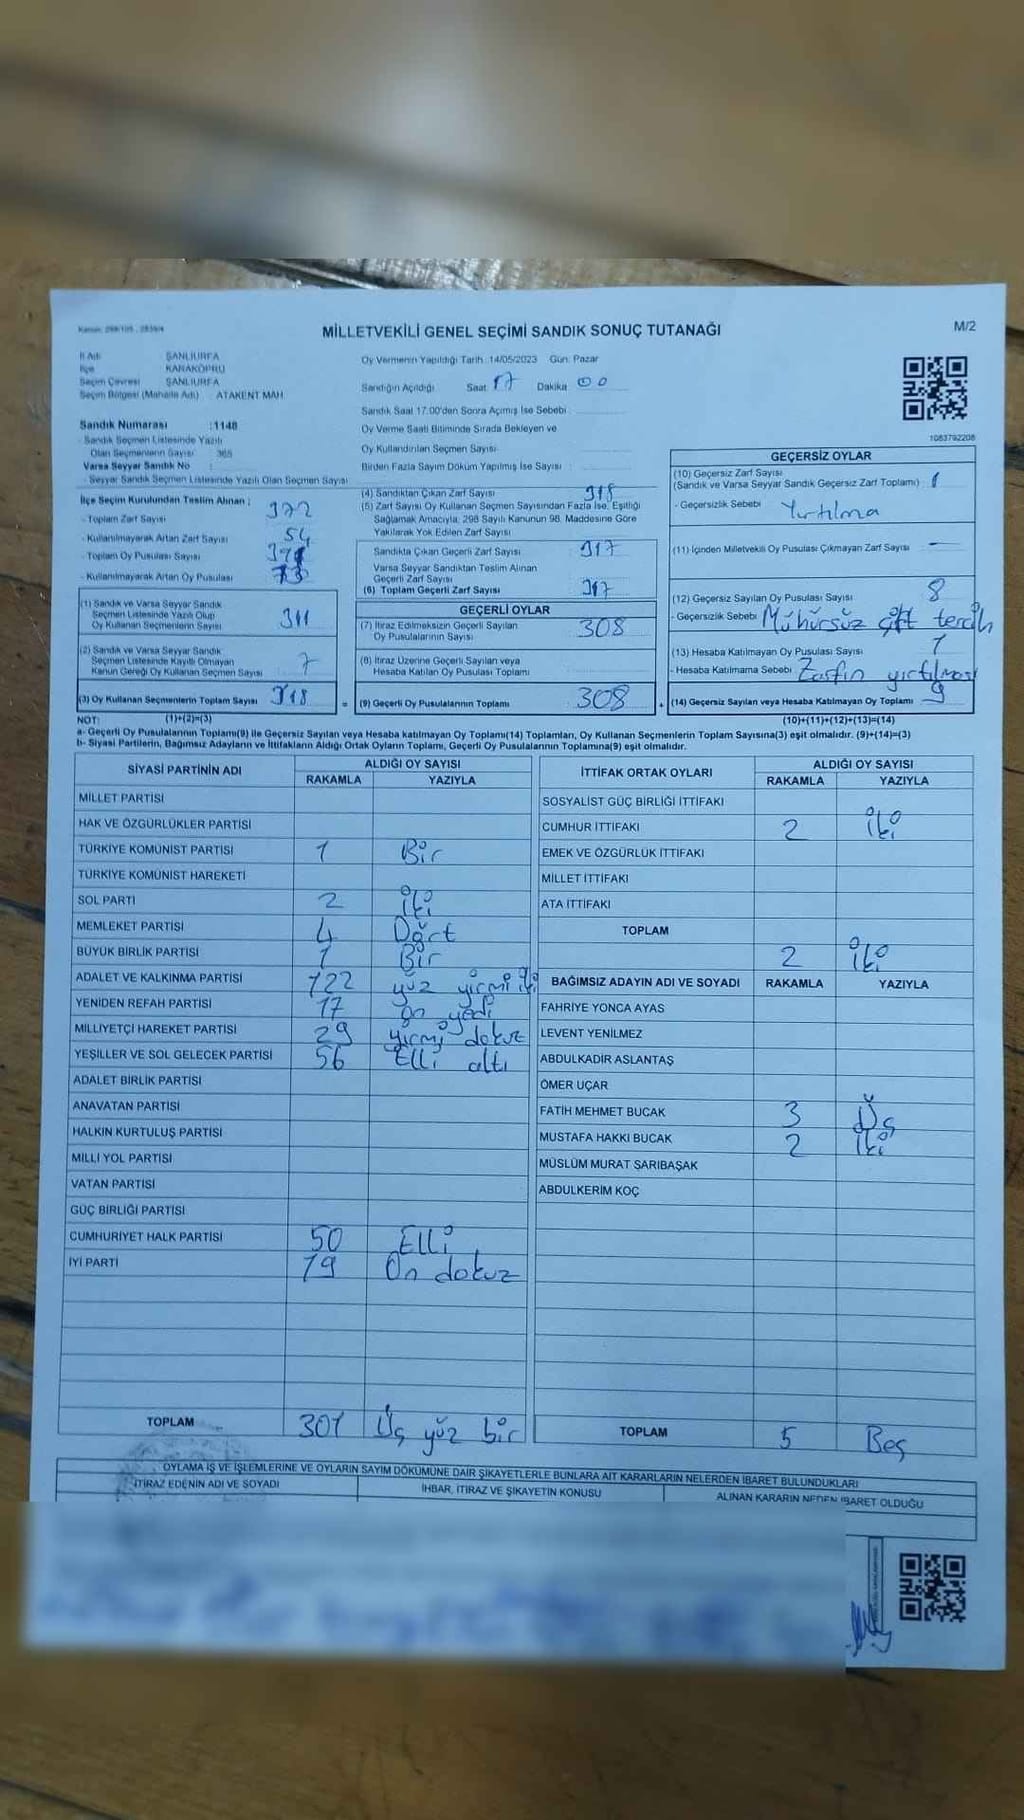 MİLLETVEKİLİ GENEL SEÇİMİ SANDIK SONUÇ TUTANAĞI
M/2
İl Adı ŞANLIURFA
İlçe KARAKÖPRÜ
Seçim Çevresi ŞANLIURFA
Seçim Bölgesi (Mahalle Adı) : ATAKENT MAH
Oy Vermenin Yapıldığı Tarih :14/05/2023 Gün: Pazar
Sandığın Açıldığı Saat 17 Dakika 00
Sandık Saat 17.00'den Sonra Açımış İse Sebebi :
Oy Verme Saati Bitiminde Sırada Bekleyen ve
Oy Kullandırılan Seçmen Sayısı
Birden Fazla Sayım Döküm Yapılmış İse Sayısı :
Sandık Numarası :1148
- Sandık Seçmen Listesinde Yazılı
Olan Seçmenlerin Sayısı : 365
Varsa Seyyar Sandık No :
- Seyyar Sandık Seçmen Listesinde Yazılı Olan Seçmen Sayısı
1083792208
İlçe Seçim Kurulundan Teslim Alınan :
- Toplam Zarf Sayısı 372
- Kullanılmayarak Artan Zarf Sayısı 54
- Toplam Oy Pusulası Sayısı
- Kullanılmayarak Artan Oy Pusulası 73
(1) Sandık ve Varsa Seyyar Sandık
Seçmen Listesinde Yazılı Olup
Oy Kullanan Seçmenlerin Sayısı 311
(2) Sandık ve Varsa Seyyar Sandık
Seçmen Listesinde Kayıtlı Olmayan
Kanun Gereği Oy Kullanan Seçmen Sayısı 7
(3) Oy Kullanan Seçmenlerin Toplam Sayısı 318
(4) Sandıktan Çıkan Zarf Sayısı 318
(5) Zarf Sayısı Oy Kullanan Seçmen Sayısından Fazla İse, Eşitliği
Sağlamak Amacıyla, 298 Sayılı Kanunun 98. Maddesine Göre
Yakılarak Yok Edilen Zarf Sayısı
Sandıkta Çıkan Geçerli Zarf Sayısı 317
Varsa Seyyar Sandıktan Teslim Alınan
Geçerli Zarf Sayısı
(6) Toplam Geçerli Zarf Sayısı 317
GEÇERLİ OYLAR
(7) İtiraz Edilmeksizin Geçerli Sayılan
Oy Pusulalarının Sayısı 308
(8) İtiraz Üzerine Geçerli Sayılan veya
Hesaba Katılan Oy Pusulası Toplamı
= (9) Geçerli Oy Pusulalarının Toplamı 308
GEÇERSİZ OYLAR
(10) Geçersiz Zarf Sayısı
(Sandık ve Varsa Seyyar Sandık Geçersiz Zarf Toplamı) 1
- Geçersizlik Sebebi Yırtılma
(11) İçinden Milletvekili Oy Pusulası Çıkmayan Zarf Sayısı —
(12) Geçersiz Sayılan Oy Pusulası Sayısı 8
- Geçersizlik Sebebi Mühürsüz çift tercih
(13) Hesaba Katılmayan Oy Pusulası Sayısı 1
- Hesaba Katılmama Sebebi Zarfın yırtılması
+ (14) Geçersiz Sayılan veya Hesaba Katılmayan Oy Toplamı 9
NOT: (1)+(2)=(3)
(10)+(11)+(12)+(13)=(14)
a- Geçerli Oy Pusulalarının Toplamı(9) ile Geçersiz Sayılan veya Hesaba katılmayan Oy Toplamı(14) Toplamları, Oy Kullanan Seçmenlerin Toplam Sayısına(3) eşit olmalıdır. (9)+(14)=(3)
b- Siyasi Partilerin, Bağımsız Adayların ve İttifakların Aldığı Ortak Oyların Toplamı, Geçerli Oy Pusulalarının Toplamına(9) eşit olmalıdır.
SİYASİ PARTİNİN ADI ALDIĞI OY SAYISI
RAKAMLA YAZIYLA
MİLLET PARTİSİ
HAK VE ÖZGÜRLÜKLER PARTİSİ
TÜRKİYE KOMÜNİST PARTİSİ 1 Bir
TÜRKİYE KOMÜNİST HAREKETİ
SOL PARTİ 2 İki
MEMLEKET PARTİSİ 4 Dört
BÜYÜK BİRLİK PARTİSİ 1 Bir
ADALET VE KALKINMA PARTİSİ 122 yüz yirmi iki
YENİDEN REFAH PARTİSİ 17 on yedi
MİLLİYETÇİ HAREKET PARTİSİ 29 yirmi dokuz
YEŞİLLER VE SOL GELECEK PARTİSİ 56 Elli altı
ADALET BİRLİK PARTİSİ
ANAVATAN PARTİSİ
HALKIN KURTULUŞ PARTİSİ
MİLLİ YOL PARTİSİ
VATAN PARTİSİ
GÜÇ BİRLİĞİ PARTİSİ
CUMHURİYET HALK PARTİSİ 50 Elli
İYİ PARTİ 19 On dokuz
TOPLAM 301 Üç yüz bir
İTTİFAK ORTAK OYLARI ALDIĞI OY SAYISI
RAKAMLA YAZIYLA
SOSYALİST GÜÇ BİRLİĞİ İTTİFAKI
CUMHUR İTTİFAKI 2 İki
EMEK VE ÖZGÜRLÜK İTTİFAKI
MİLLET İTTİFAKI
ATA İTTİFAKI
TOPLAM 2 İki
BAĞIMSIZ ADAYIN ADI VE SOYADI RAKAMLA YAZIYLA
FAHRİYE YONCA AYAS
LEVENT YENİLMEZ
ABDULKADİR ASLANTAŞ
ÖMER UÇAR
FATİH MEHMET BUCAK 3 Üç
MUSTAFA HAKKI BUCAK 2 İki
MÜSLÜM MURAT SARIBAŞAK
ABDULKERİM KOÇ
TOPLAM 5 Beş
OYLAMA İŞ VE İŞLEMLERİNE VE OYLARIN SAYIM DÖKÜMÜNE DAİR ŞİKAYETLERLE BUNLARA AİT KARARLARIN NELERDEN İBARET BULUNDUKLARI
İTİRAZ EDENİN ADI VE SOYADI
İHBAR, İTİRAZ VE ŞİKAYETİN KONUSU
ALINAN KARARIN NEDEN İBARET OLDUĞU